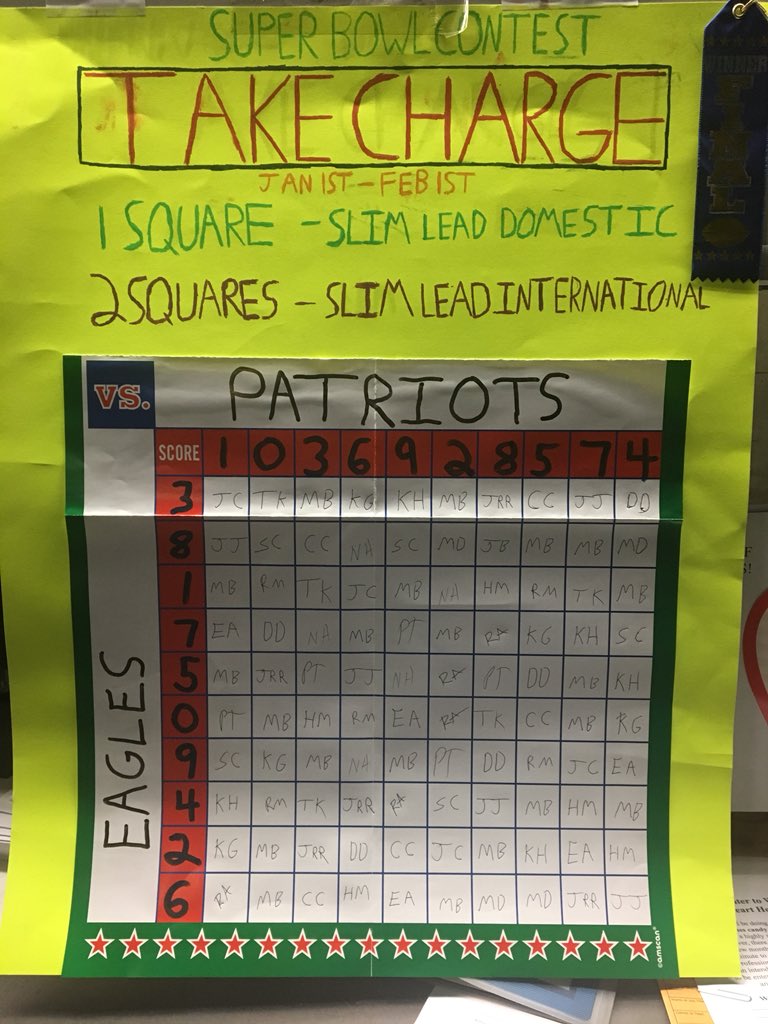 SUPER BOWL CONTEST
TAKE CHARGE
JAN 1ST - FEB 1ST
1 SQUARE - SLIM LEAD DOMESTIC
2 SQUARES - SLIM LEAD INTERNATIONAL
WINNER
FINAL
VS. PATRIOTS
SCORE 1 0 3 6 9 2 8 5 7 4
EAGLES
3 JC TK MB KG KH MB JRR CC JJ DD
8 JJ SC CC NH SC MD JB MB MB MD
1 MB RM TK JC MB NH HM RM TK MB
7 EA DD NH MB PT MB RX KG KH SC
5 MB JRR PT JJ NH RX PT DD MB KH
0 PT MB HM RM EA RX TK CC MB KG
9 SC KG MB NH MB PT DD RM JC EA
4 KH RM TK JRR RX SC JJ MB HM MB
2 KG MB JRR DD CC JC MB KH EA HM
6 RX MB CC HM EA MB MD MD JRR JJ
©amscan